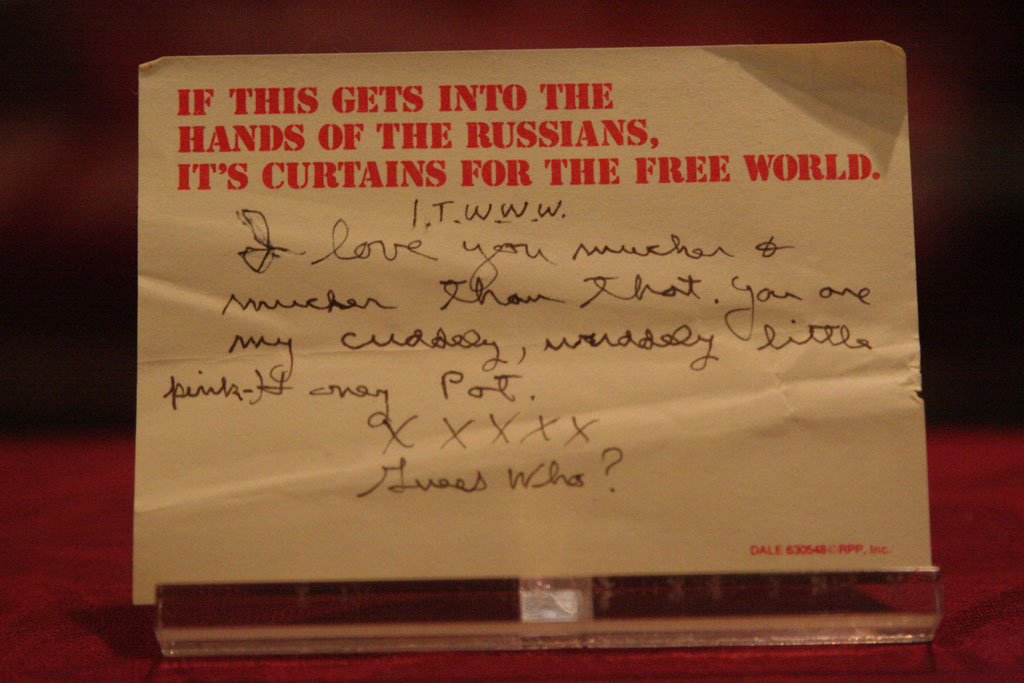 IF THIS GETS INTO THE
HANDS OF THE RUSSIANS,
IT'S CURTAINS FOR THE FREE WORLD.
I.T.W.W.W.
I love you mucher &
mucher than that. You are
my cuddely, wuddely little
pink-Honey Pot.
X X X X X
Guess Who?
DALE 630548 © RPP, Inc.